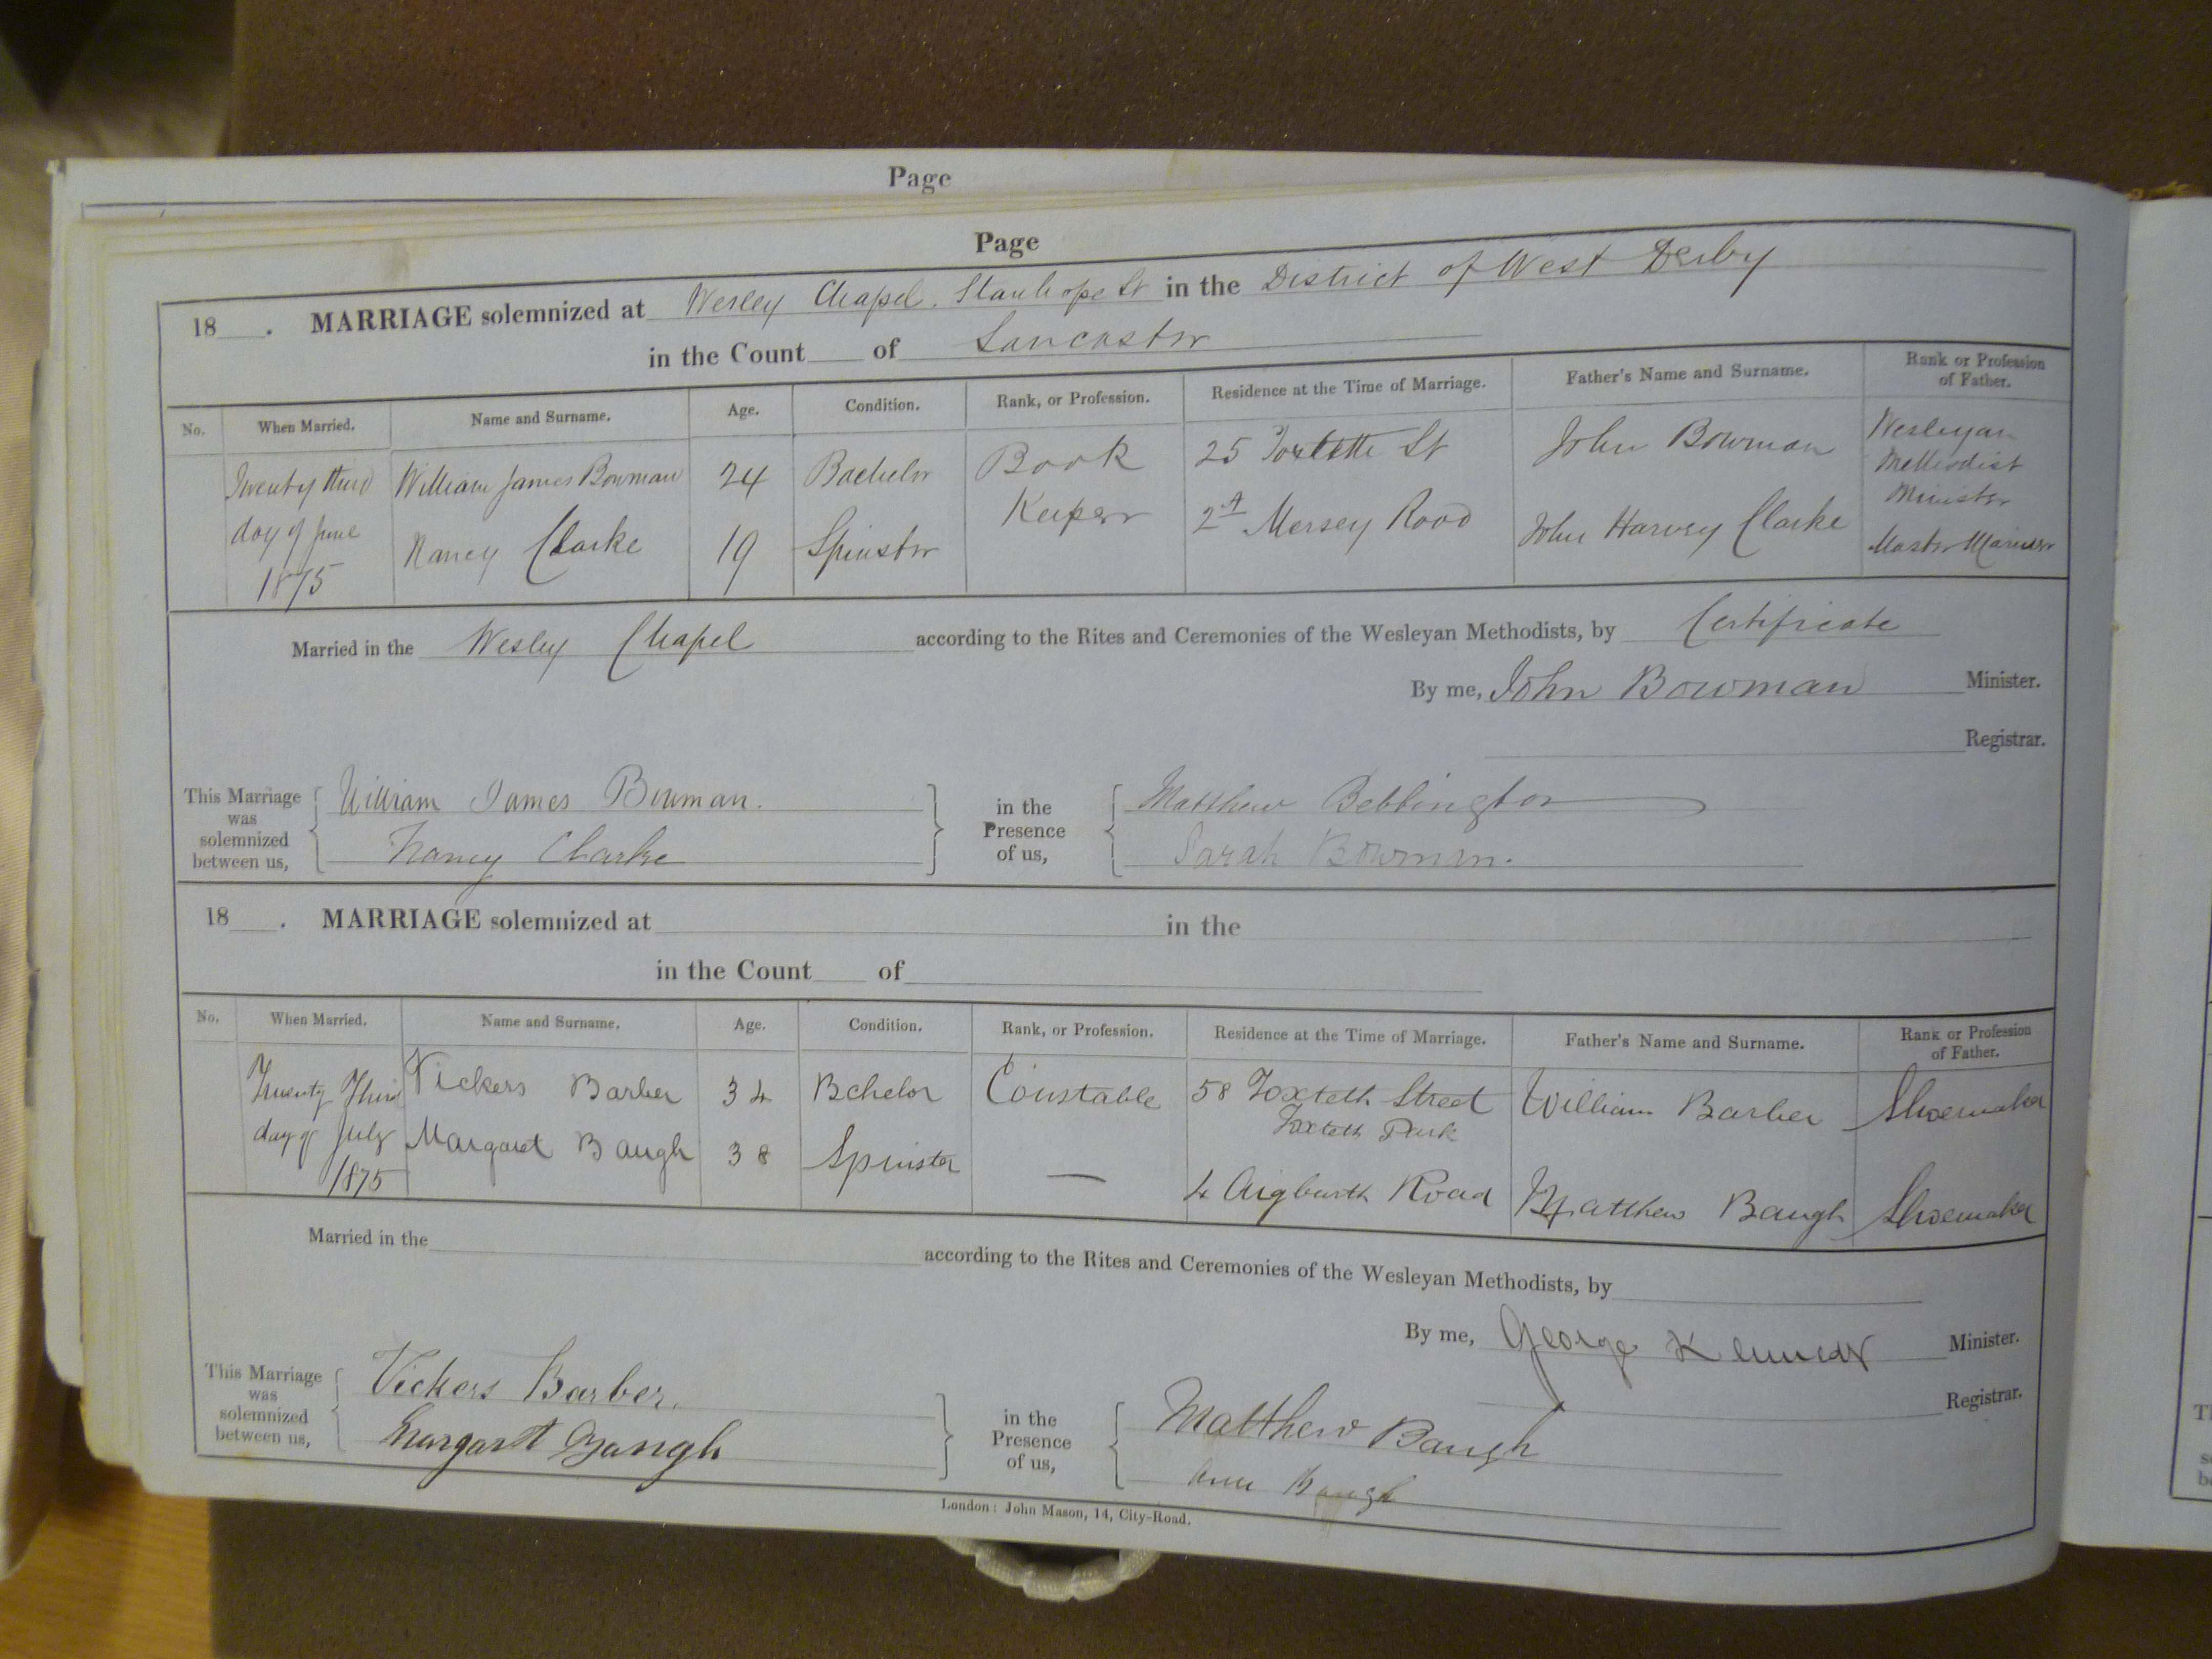 Page
Page
18 . MARRIAGE solemnized at Wesley Chapel. Stanhope St in the District of West Derby
in the Count of Lancaster
No. When Married. Name and Surname. Age. Condition. Rank, or Profession. Residence at the Time of Marriage. Father's Name and Surname. Rank or Profession of Father.
Twenty third William James Bowman 24 Bachelor Book 25 Toxteth St John Bowman Wesleyan
Methodist
Minister
day of June Nancy Clarke 19 Spinster Keeper 2A Mersey Road John Harvey Clarke Master Mariner
1875
Married in the Wesley Chapel according to the Rites and Ceremonies of the Wesleyan Methodists, by Certificate
By me, John Bowman Minister.
Registrar.
This Marriage was solemnized between us,
William James Bowman.
Nancy Clarke
in the Presence of us,
Matthew Bebbington
Sarah Bowman.
18 . MARRIAGE solemnized at in the
in the Count of
No. When Married. Name and Surname. Age. Condition. Rank, or Profession. Residence at the Time of Marriage. Father's Name and Surname. Rank or Profession of Father.
Twenty Third Vickers Barber 34 Bchelor Constable 58 Toxteth Street William Barber Shoemaker
Toxteth Park
day of July Margaret Baugh 38 Spinster — 4 Aigburth Road Matthew Baugh Shoemaker
1875
Married in the according to the Rites and Ceremonies of the Wesleyan Methodists, by
By me, George Kennedy Minister.
Registrar.
This Marriage was solemnized between us,
Vickers Barber.
Margaret Baugh
in the Presence of us,
Matthew Baugh
Ann Baugh
London: John Mason, 14, City-Road.